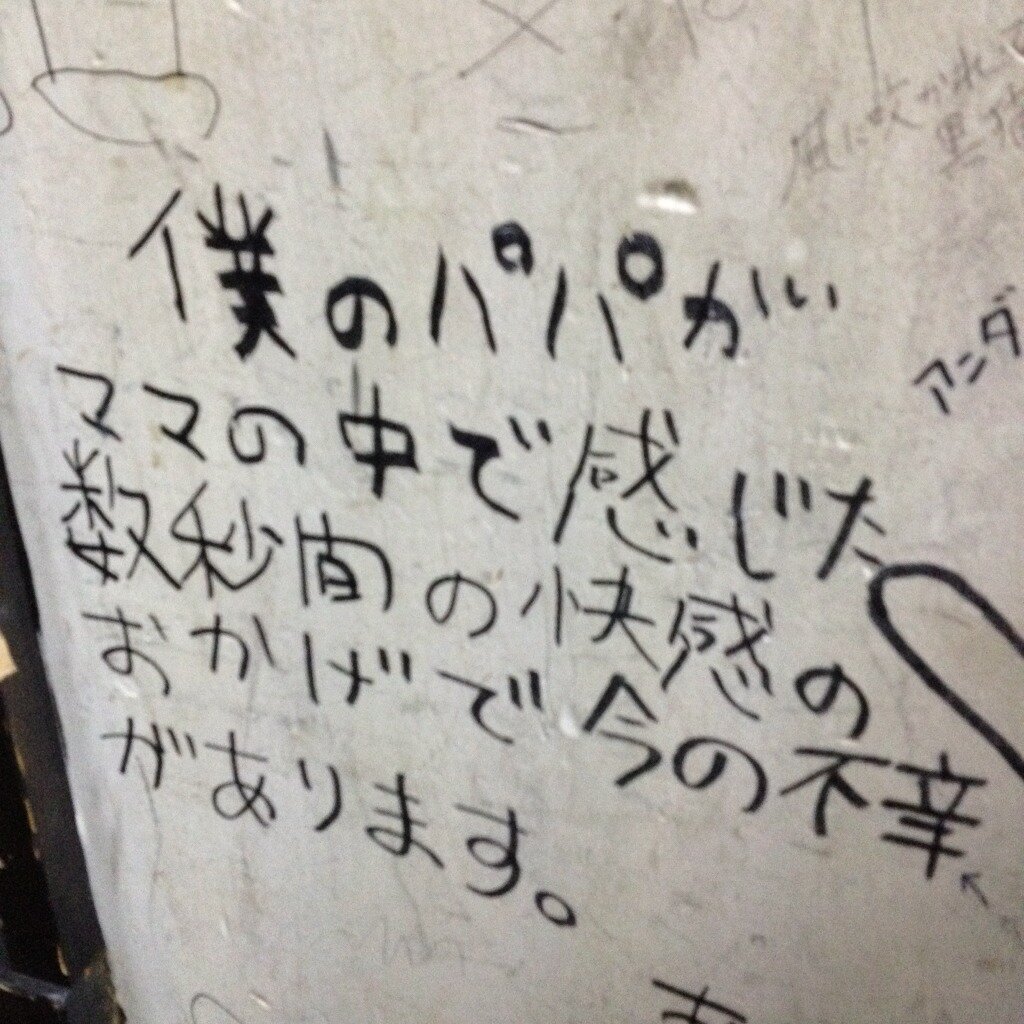 風に吹かれて
僕のパパが
ママの中で感じた
数秒間の快感の
おかげで今の不幸
があります。
アンダ